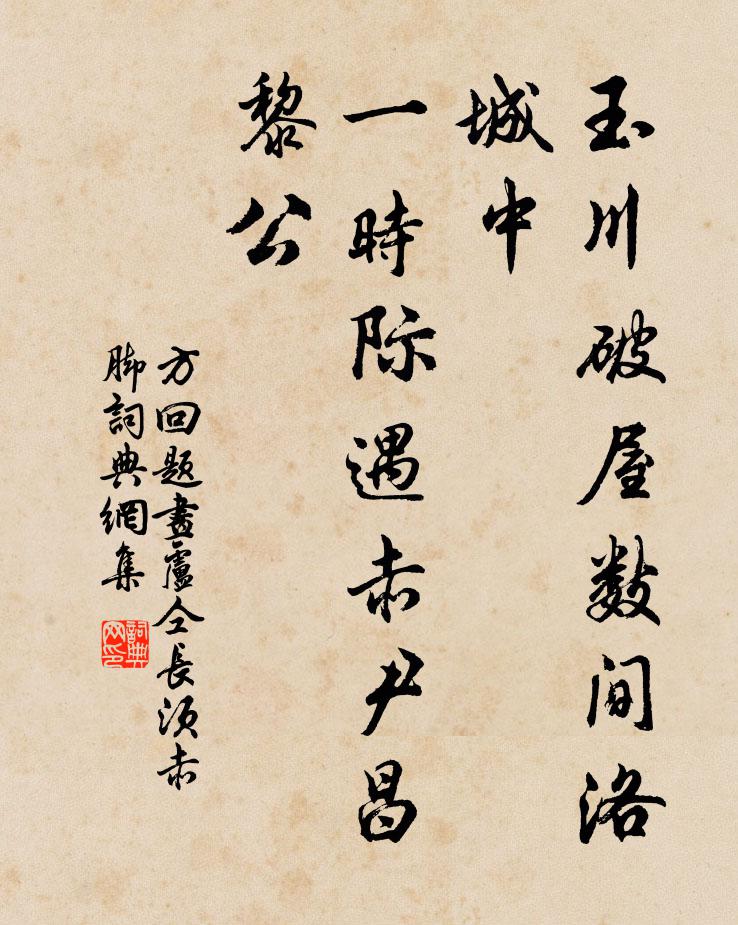 玉川破屋数间洛
城中
一時际遇赤尹昌
黎公
方回题畫盧仝長须赤
脚詞典網集
詞典
网印